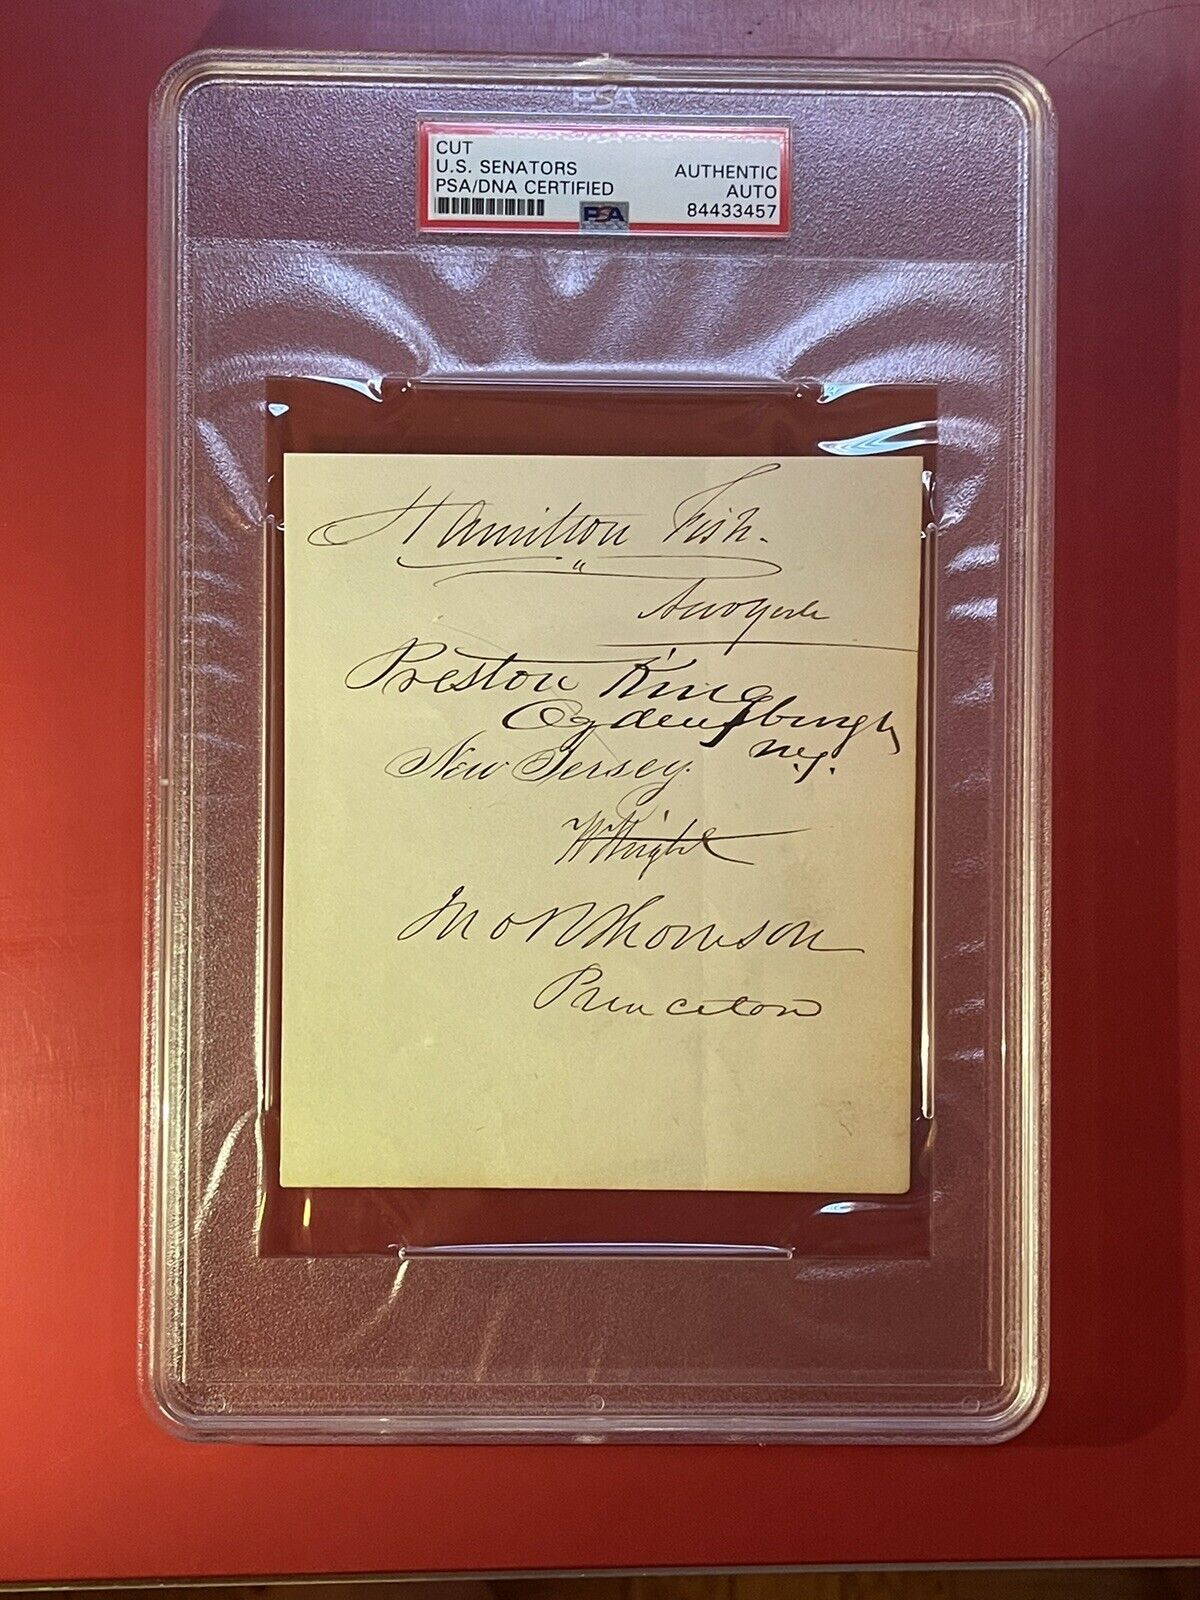 PSA
CUT
U.S. SENATORS
PSA/DNA CERTIFIED
AUTHENTIC
AUTO
84433457
PSA
Hamilton Fish.
New York
Preston King
Ogdensburgh
N.Y.
New Jersey.
W Wright
Jno R Thomson
Princeton